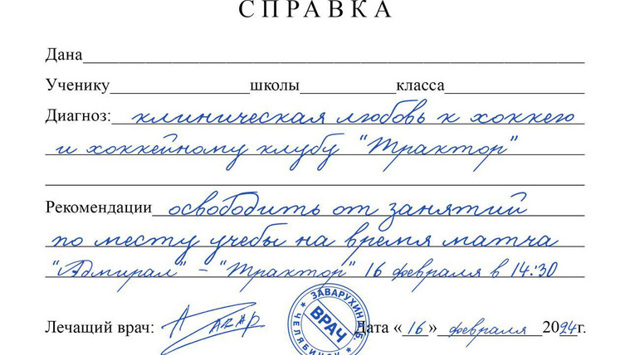 СПРАВКА
Дана
Ученику школы класса
Диагноз: клиническая любовь к хоккею
и хоккейному клубу "Трактор"
Рекомендации освободить от занятий
по месту учебы на время матча
"Адмирал" - "Трактор" 16 февраля в 14:30
Лечащий врач: ЗАВАРУХИН ВРАЧ Дата «16» февраля 2024г.